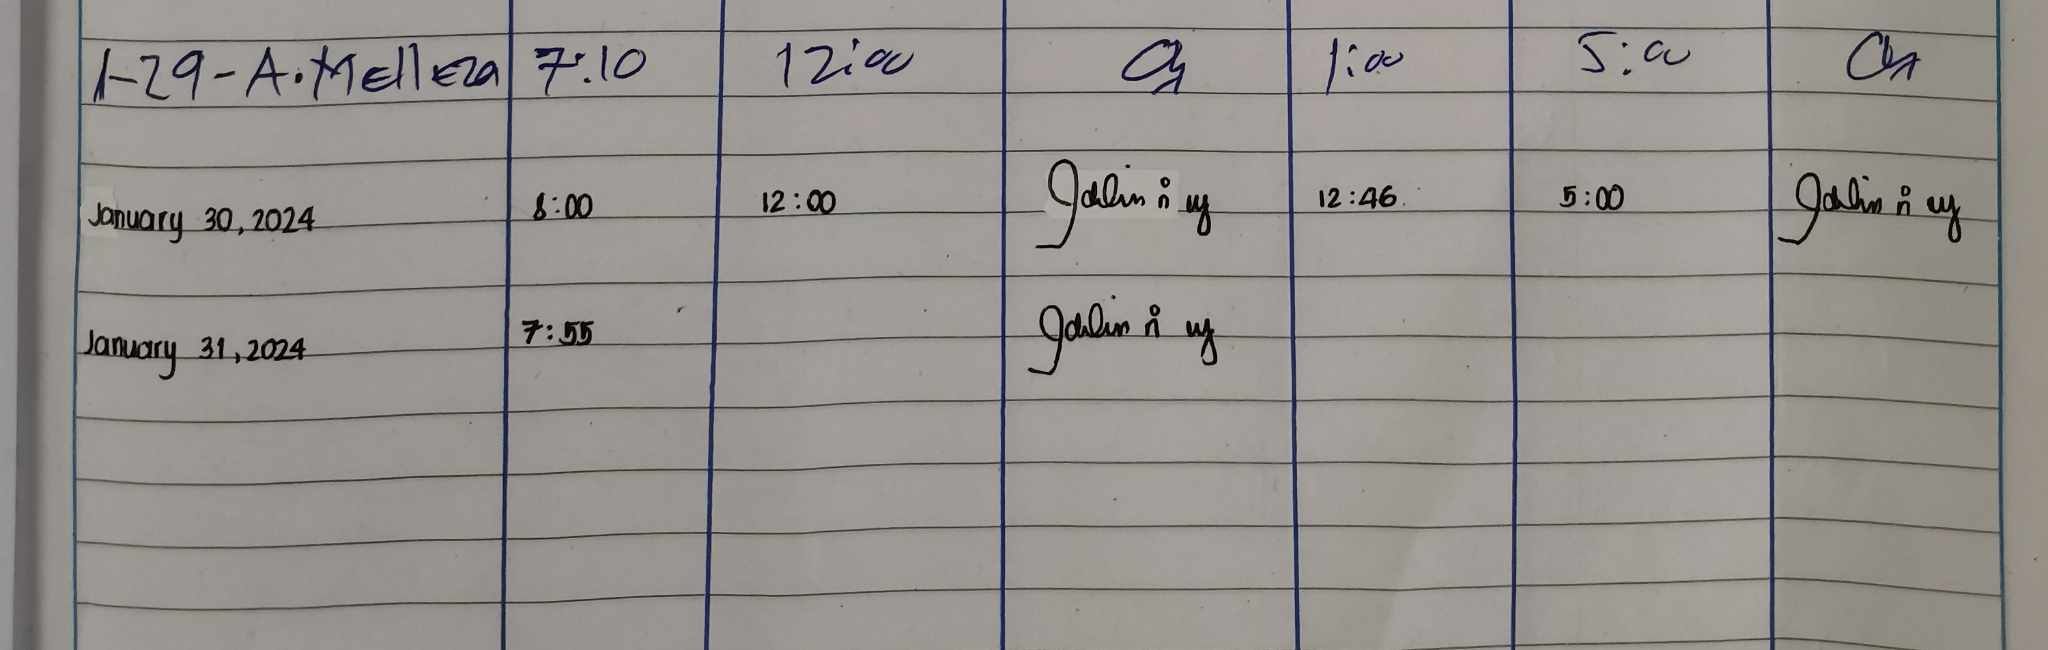 1-29-A.Melleza 7:10 12:00 1:00 5:00
January 30, 2024 8:00 12:00 12:46 5:00
January 31, 2024 7:55